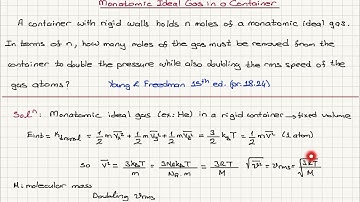 Monatomic Ideal Gas in a Container
A container with rigid walls holds n moles of a monatomic ideal gas.
In terms of n, how many moles of the gas must be removed from the
container to double the pressure while also doubling the rms speed of
the gas atoms? Young & Freedman 15th ed. (pr.18.24)
Solⁿ: Monatomic ideal gas (ex: He) in a rigid container → fixed volume
Eint = K = 1/2 m v² + 1/2 m v² + 1/2 m v² = 3/2 k T = 1/2 m v² (1 atom)
So v² = 3kT/m = 3kT/m = 3RT/M √v² = vrms = √3RT/M
M: molecular mass
Doubling vrms